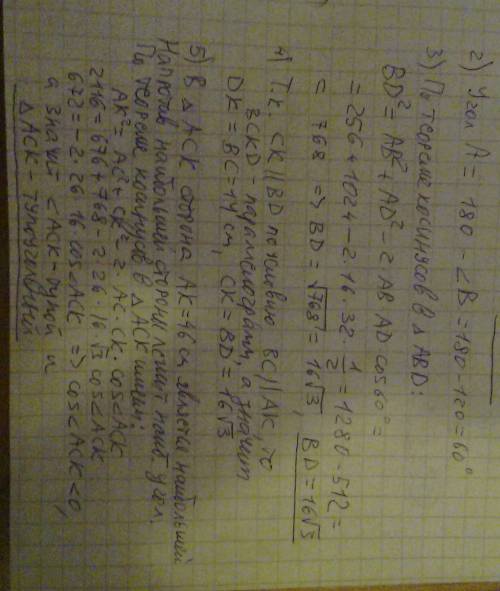 2) Угол A = 180 - ∠B = 180 - 120 = 60°
3) По теореме косинусов в Δ ABD:
BD² = AB² + AD² - 2 AB AD cos 60° =
= 256 + 1024 - 2·16·32 · 1/2 = 1280 - 512 =
= 768 => BD = √768 = 16√3, BD = 16√3
4) Т.к. CK || BD по условию BC || AK, то
BCKD - параллелограмм, а значит
DK = BC = 14 см, CK = BD = 16√3
5) В Δ ACK сторона AK = 46 см является наибольшей
Напротив наибольшей стороны лежит наиб. угол.
По теореме косинусов в Δ ACK имеем:
AK² = AC² + CK² - 2·AC·CK·cos<ACK
2116 = 676 + 768 - 2·26·16√3 cos<ACK
672 = -2·26·16 cos<ACK => cos<ACK <0,
а значит <ACK - тупой и
Δ ACK - тупоугольный